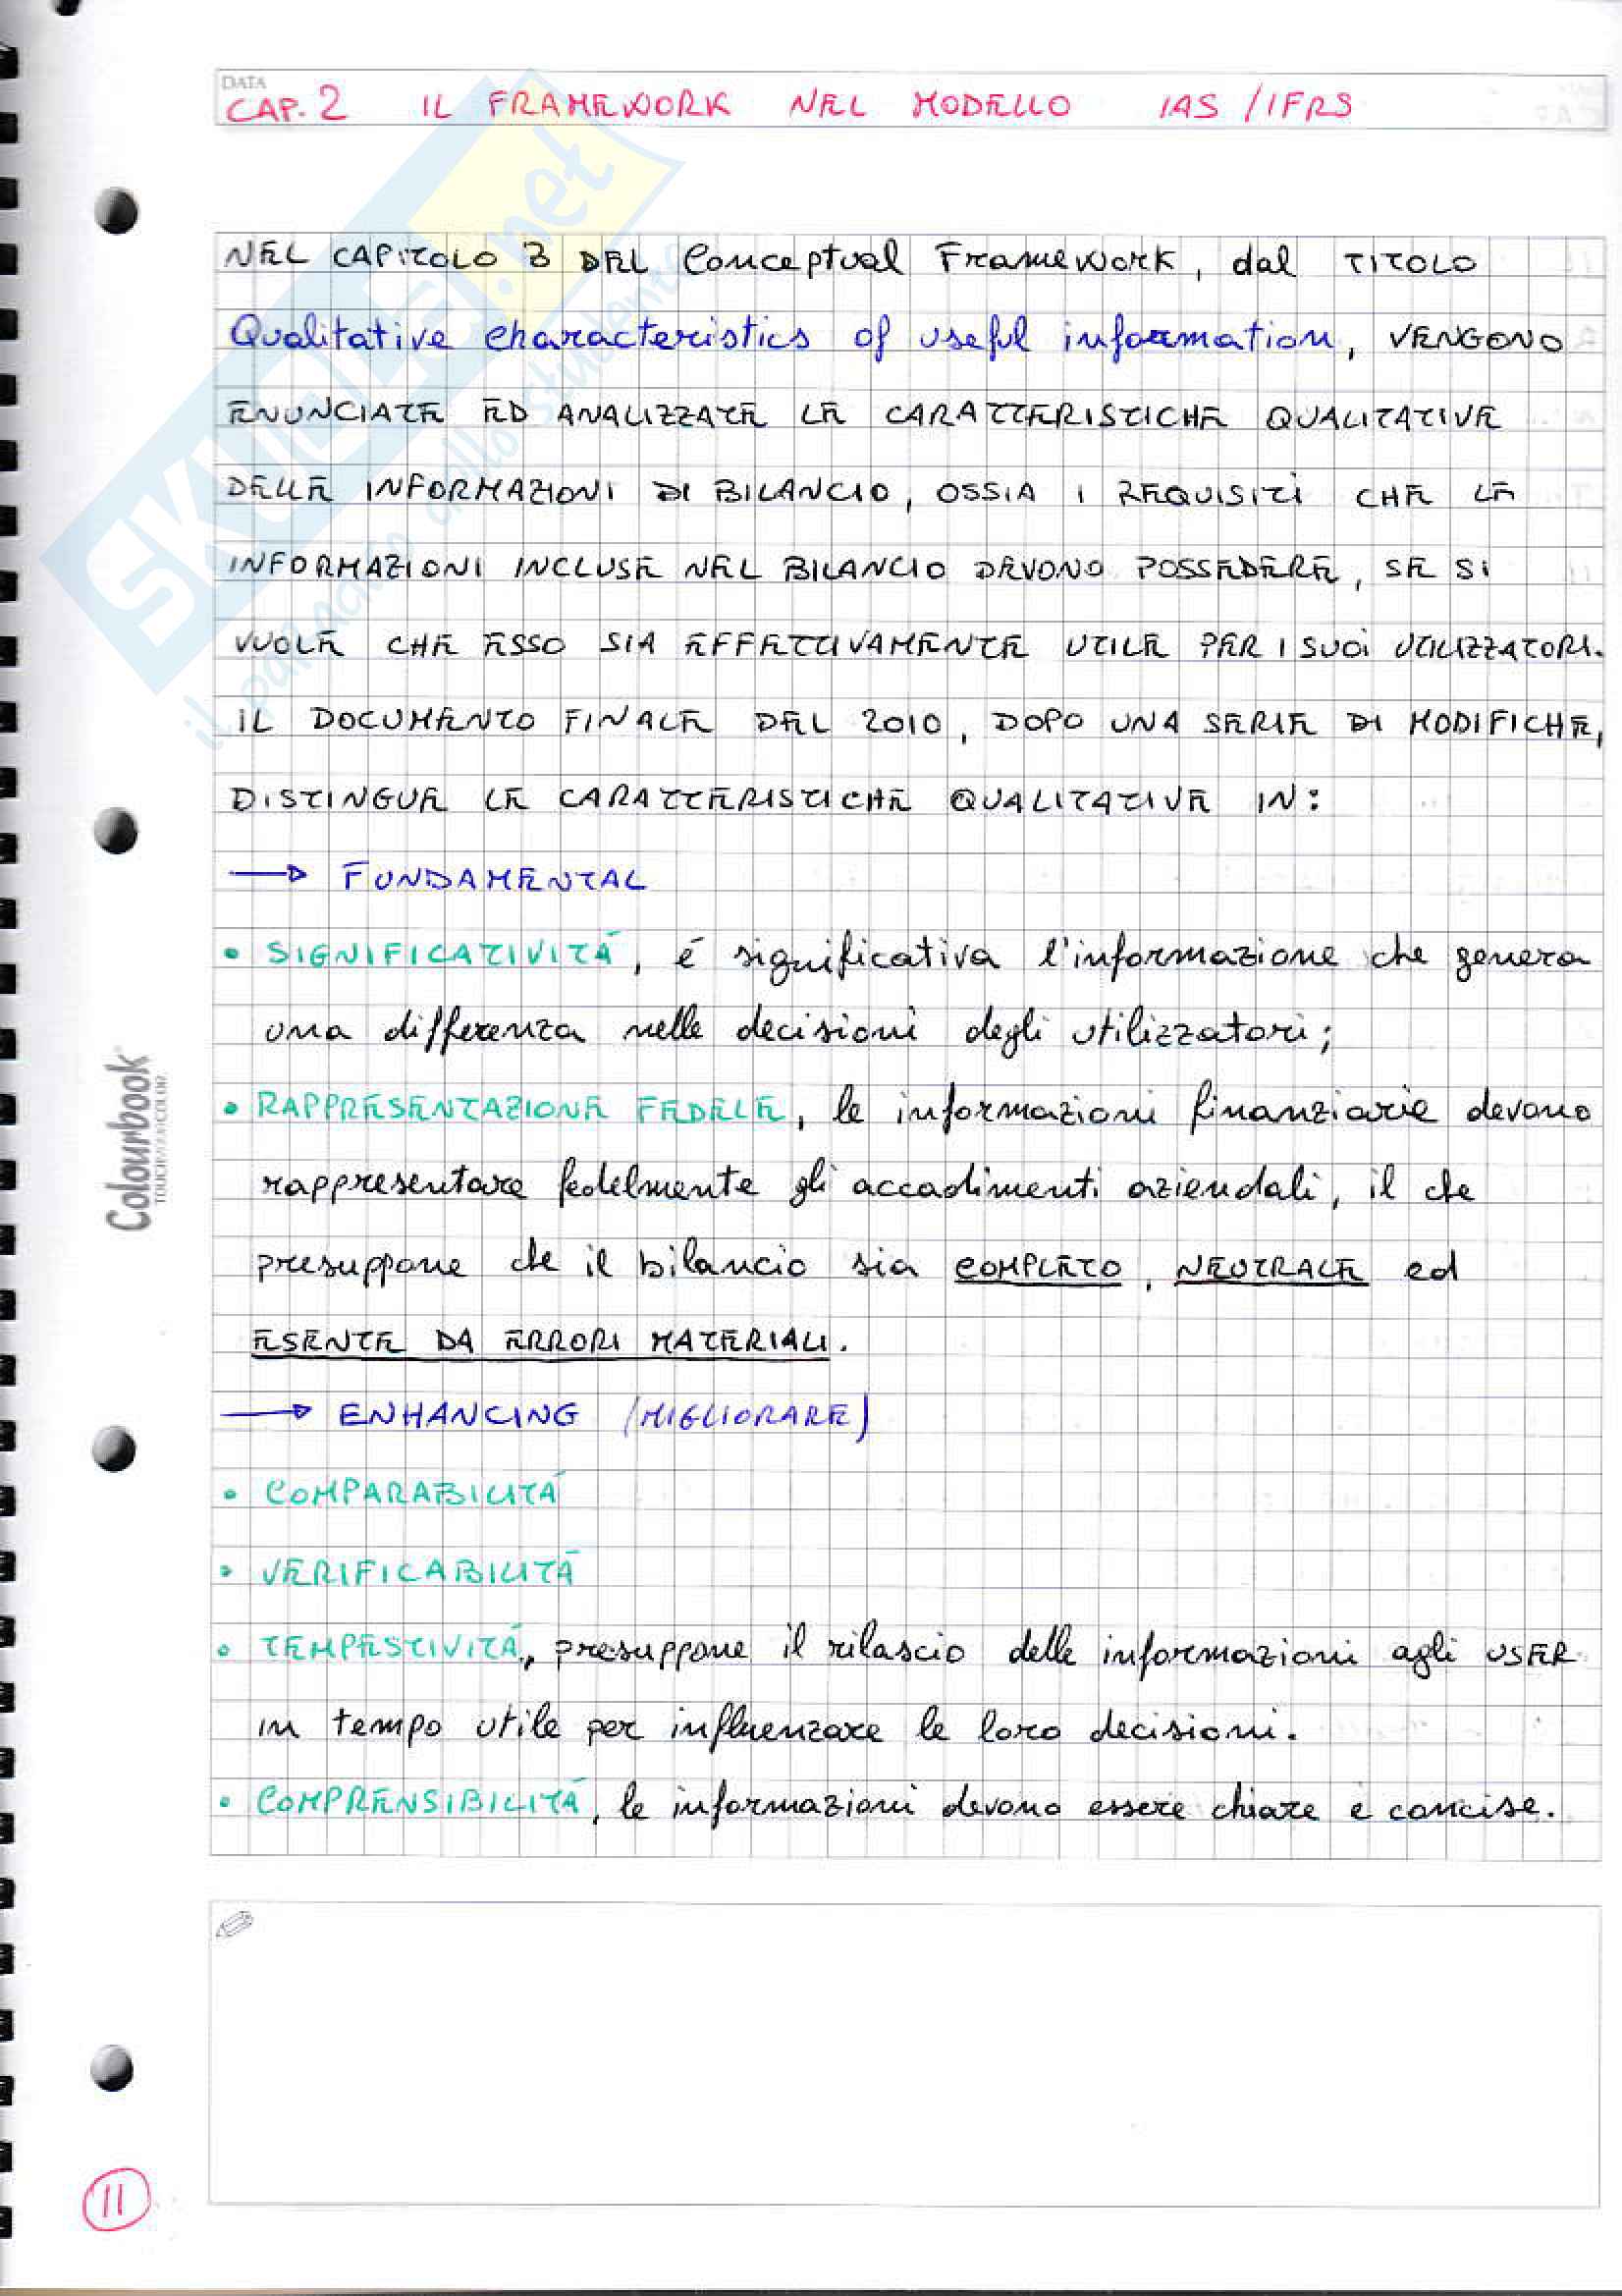 DATA
CAP. 2 IL FRAMEWORK NEL MODELLO IAS / IFRS
NEL CAPITOLO 3 DEL Conceptual Framework, dal TITOLO
Qualitative characteristics of useful information, VENGONO
ENUNCIATE ED ANALIZZATE LE CARATTERISTICHE QUALITATIVE
DELLE INFORMAZIONI DI BILANCIO, OSSIA I REQUISITI CHE LE
INFORMAZIONI INCLUSE NEL BILANCIO DEVONO POSSEDERE, SE SI
VUOLE CHE ESSO SIA EFFETTIVAMENTE UTILE PER I SUOI UTILIZZATORI.
IL DOCUMENTO FINALE DEL 2010, DOPO UNA SERIE DI MODIFICHE,
DISTINGUE LE CARATTERISTICHE QUALITATIVE IN:
→ FUNDAMENTAL
• SIGNIFICATIVITÁ, é significativa l'informazione che genera
una differenza nelle decisioni degli utilizzatori;
• RAPPRESENTAZIONE FEDELE, le informazioni finanziarie devono
rappresentare fedelmente gli accadimenti aziendali, il che
presuppone che il bilancio sia COMPLETO, NEUTRALE ed
ESENTE DA ERRORI MATERIALI.
→ ENHANCING (MIGLIORARE)
• COMPARABILITÁ
• VERIFICABILITÁ
• TEMPESTIVITÁ, presuppone il rilascio delle informazioni agli USER
in tempo utile per influenzare le loro decisioni.
• COMPRENSIBILITÁ, le informazioni devono essere chiare e concise.
11
Colourbook
SKUOLA.net
il paradiso dello studente